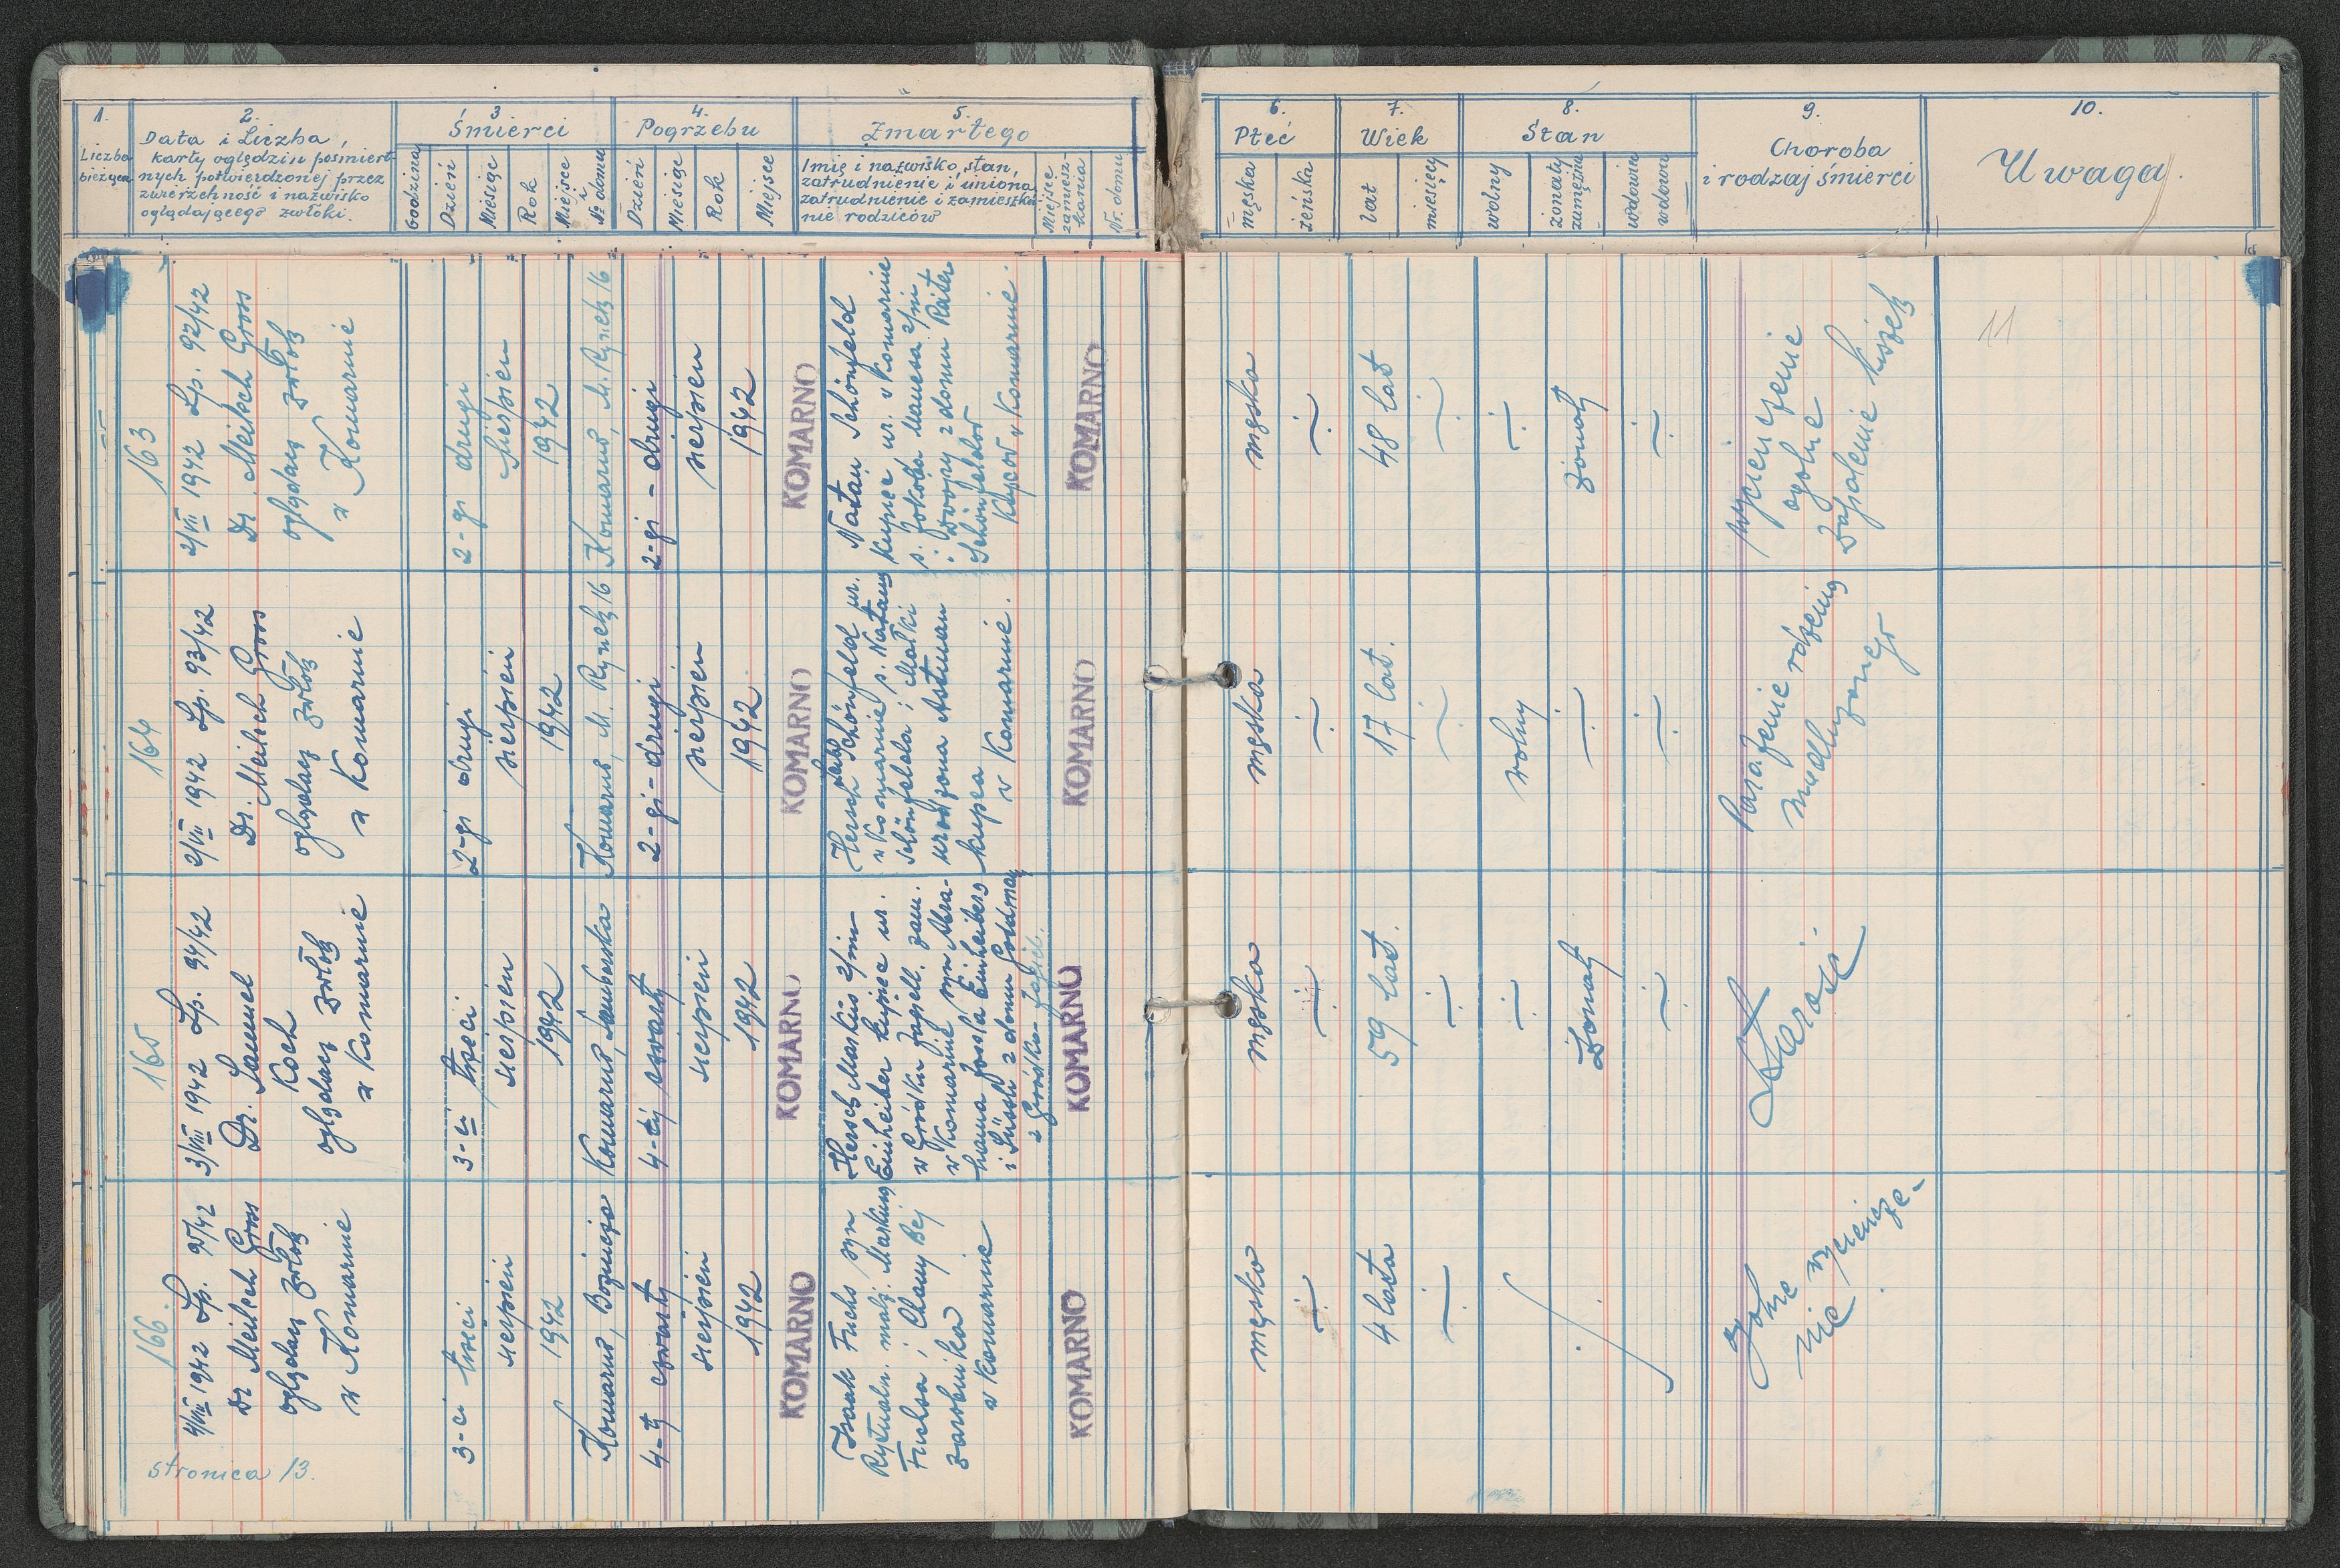 1.
Liczba
bieżąca
2.
Data i Liczba,
karty oględzin pośmiert-
nych potwierdzonej przez
zwierzchność i nazwisko
oglądającego zwłoki.
3
Śmierci
Godzina
Dzień
Miesiąc
Rok
Miejsce
i
№ domu
4.
Pogrzebu
Dzień
Miesiąc
Rok
Miejsce
5.
Zmarłego
Imię i nazwisko, stan,
zatrudnienie i imiona,
zatrudnienie i zamieszka-
nie rodziców
Miejsce
zamiesz-
kania
Nr. domu
6.
Płeć
męska
żeńska
7.
Wiek
lat
miesięcy
8.
Stan
wolny
żonaty
zamężna
wdowiec
wdowa
9.
Choroba
i rodzaj śmierci
10.
Uwaga.
163
2/VIII 1942 Lp. 92/42
Dr. Meilech Gross
oglądacz zwłok
w Komarnie
2-gi drugi
sierpień
1942
Komarno, M. Rynek 16
2-gi - drugi
sierpień
1942
KOMARNO
Natan Schönfeld
kupiec ur. w Komarnie
s. Jakóba Manesa 2/im
i Dwojry z domu
Schönfeldów
kupców w Komarnie
KOMARNO
męska
÷
48 lat
÷
÷
żonaty
÷
wycieńczenie
ogólne
zapalenie kiszek
11
164
2/VIII 1942 Lp. 93/42
Dr. Meilech Gross
oglądacz zwłok
w Komarnie
2-gi drugi
sierpień
1942
Komarno, M. Rynek 16
2-gi - drugi
sierpień
1942
KOMARNO
Hersch Schönfeld ur.
w Komarnie s. Natana
Schönfelda i Malki
urodzona Astman
kupca
w Komarnie.
KOMARNO
męska
÷
17 lat.
÷
wolny
÷
÷
Porażenie rdzenia
165
3/VIII 1942 Lp. 94/42
Dr. Samuel
Koch
oglądacz zwłok
w Komarnie
3-ci trzeci
sierpień
1942
Komarno, Samborska
4-ty czwarty
sierpień
1942
KOMARNO
Hersch Markus 2/im
Einheiber kupiec ur.
w Gródku Jagiell. zam.
w Komarnie syn Abra-
hama Josla Einheibera
i Süssli z domu Goldman
z Gródka Jagiell.
KOMARNO
męska
÷
59 lat.
÷
÷
Żonaty
÷
Starość
166.
4/VIII 1942 Lp. 95/42
Dr Meilech Gross
oglądacz zwłok
w Komarnie
3-ci trzeci
sierpień
1942
Komarno, Bożnicza
4-ty czwarty
sierpień
1942
KOMARNO
Izaak Fuchs syn
Rytualn. małż. Markusa
Fuchsa i Chany Bej
zarobnika
w Komarnie
KOMARNO
męska
÷
4 lata
÷
Ogólne
wycieńcze-
nie
stronica 13.